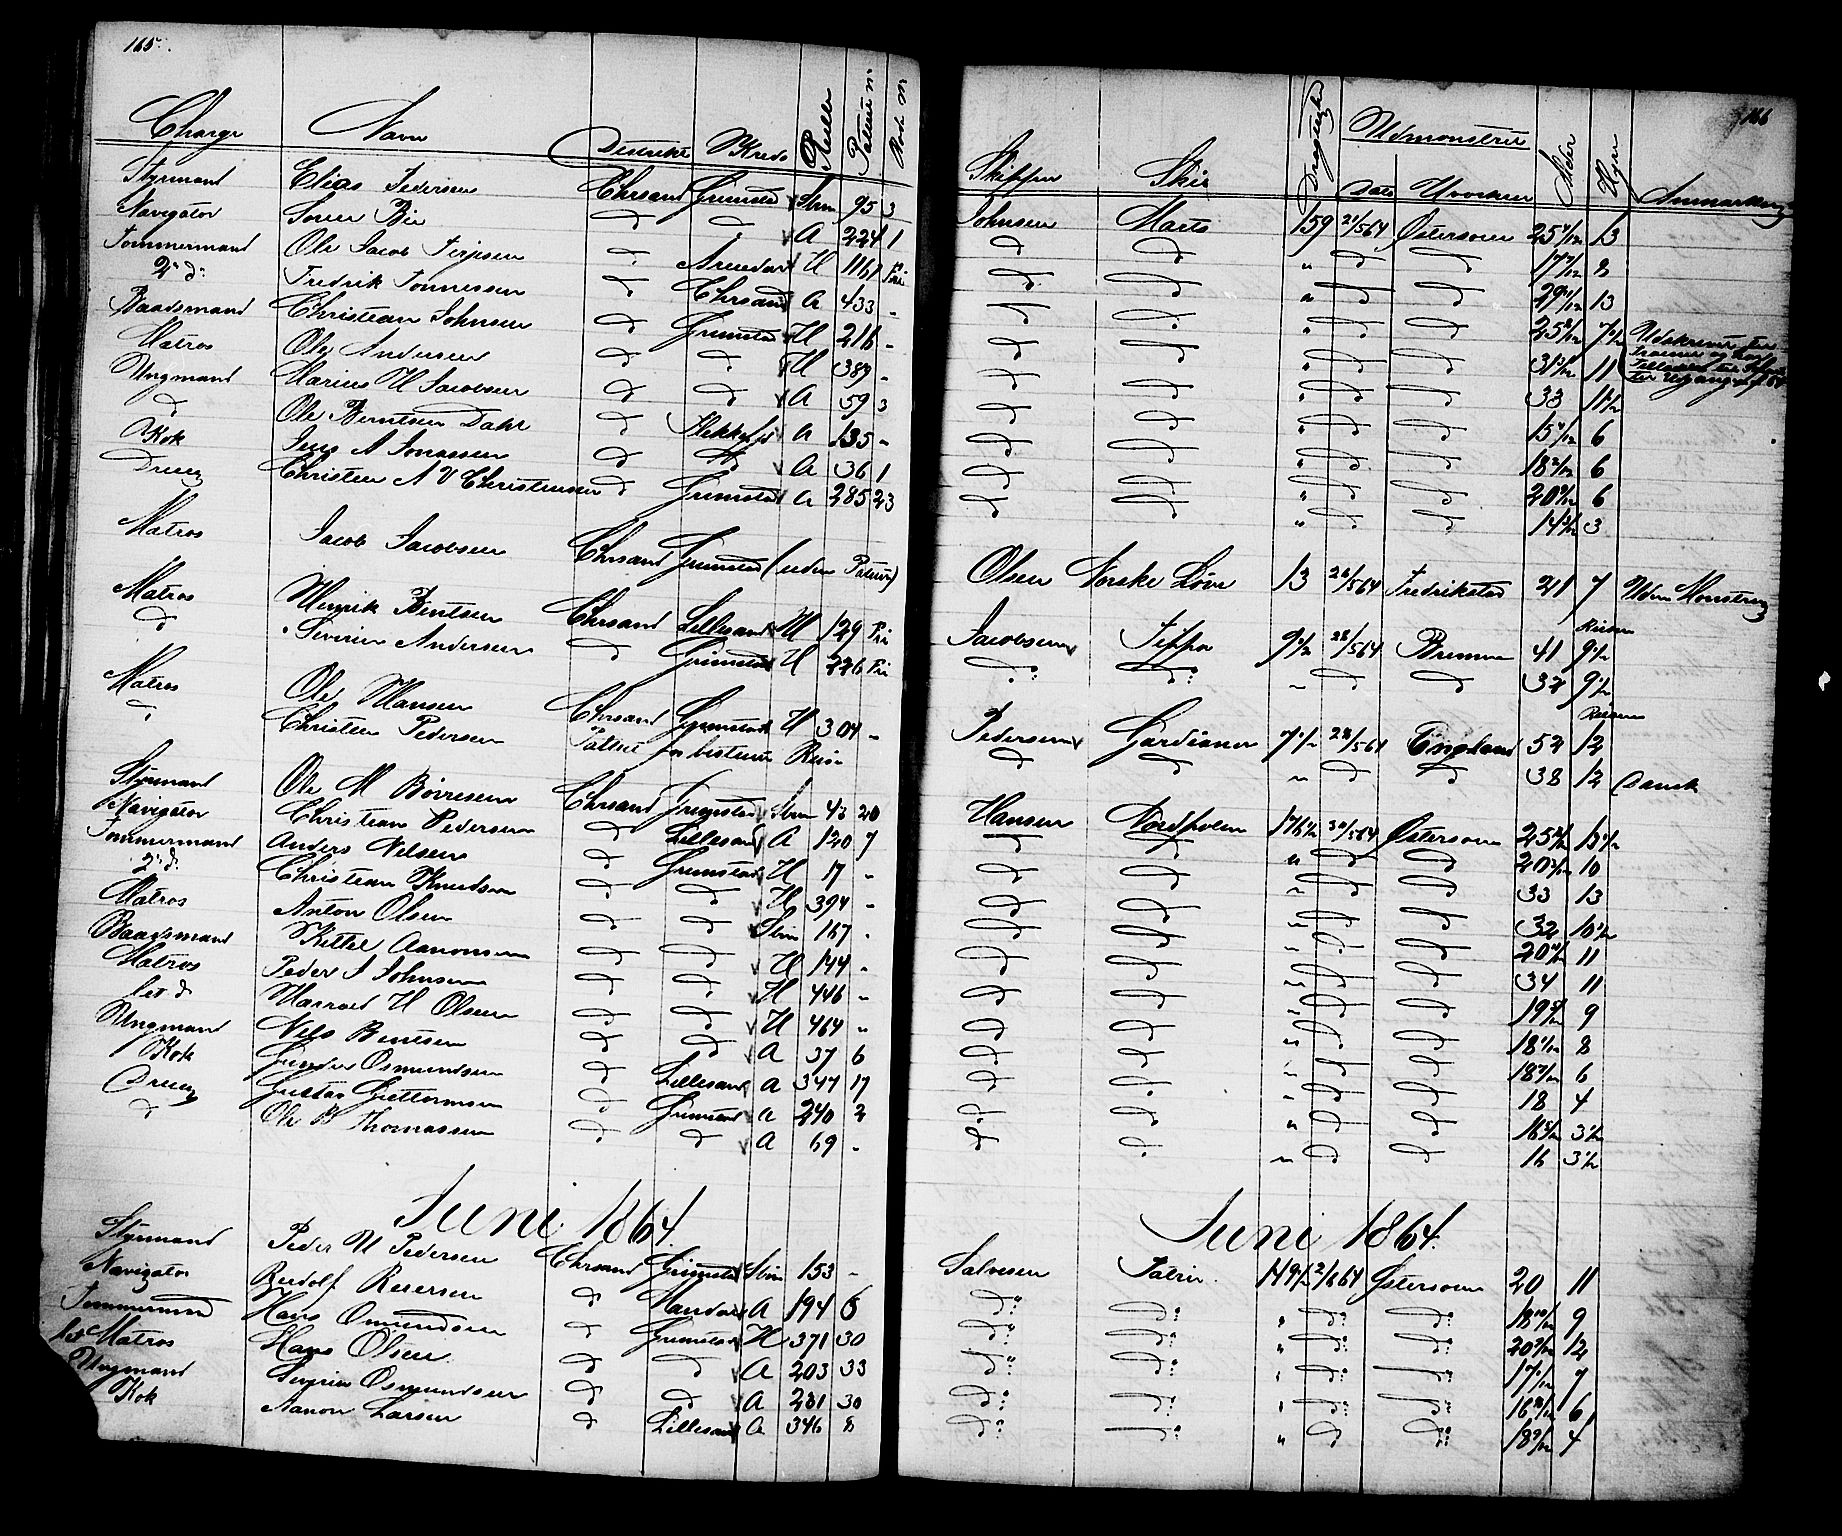 165
Charge Navn District Kreds Rulle Patent No Rode No
Styrmand Elias Pedersen Chrsand Grimstad Sbm 95 3
Navigatør Søren Bie d d A 224 1
Tømmermand Ole Jacob Terjesen d Arendal H 1161 Fri
2' d: Fredrik Tønnessen d Chrsand A 433 -
Baadsmand Christian Johnsen d Grimstad H 216 -
Matros Ole Andersen d d H 389 -
Ungmand Marius H Jacobsen d d A 59 3
d Ole Berntsen Dahl d Flekkefjd A 135 -
Kok Jens A Jonassen d d A 36 1
Dreng Christen A V Christensen d Grimstad A 285 23
Matros Jacob Jacobsen Chrsand Grimstad (uden Patent)
Matros Henrik Bentsen Chrsand Lillesand H 129 Fri
d Severin Andersen d Grimstad H 226 Fri
Matros Ole Hansen Chrsand Grimstad H 304 -
d Christen Pedersen Patent for bestemt Reise
Styrmand Ole M Børresen Chrsand Grimstad Sbm 43 20
Navigatør Christian Pedersen d Lillesand A 120 7
Tømmermand Anders Nilsen d Grimstad H 17 -
2' d: Christian Knudsen d d H 394 -
Matros Anton Olsen d d Sbm 167 -
Baadsmand Kittel Aanonsen d d H 144 -
Matros Peder A Johnsen d d H 446 -
let d H Olsen d d H 464 -
Ungmand Nils Bentsen d d A 37 6
Kok Gunder Osmundsen d Lillesand A 347 17
Dreng Gustav Guttormsen d Grimstad A 240 2
d Ole B Thomassen d d A 69 -
Juni 1864.
Styrmand Peder H Pedersen Chrsand Grimstad Sbm 153 -
Navigatør Reiersen d Mandal A 194 6
Tømmermand Hans Omundsen d Grimstad H 371 30
let Matros Hans Olsen d d A 203 33
Ungmand Severin Osmundsen d d A 281 30
Kok Aanon Larsen d Lillesand A 346 8
166
Skipper Skib Drægtighed Udmonstret Alder Hyre Anmærkning
Dato Hvorhen
Johnsen Marts 159 21/5 64 Østersøen 25 13
d d " d d 17 8
d d " d d 29 13
d d " d d 25 7½
d d " d d 31 11
d d " d d 33 11½
d d " d d 15 6
d d " d d 18 6
d d " d d 20 6
d d " d d 14 3
Olsen Norske Løve 13 26/5 64 Fredrikstad 21 7 Uden Mønstring
Jacobsen Jeppe 9½ 28/5 64 Bremen 41 9½ Reisen
d: d: " d d 32 9½
Pedersen Gardianer 7½ 28/5 64 England 52 12 Reisen
d d " d d 38 12 Dansk
Hansen Nordpolen 176½ 30/5 64 Østersøen 25 13½
d d " d d 20 10
d d " d d 33 13
d d " d d 32 10½
d d " d d 20 11
d d " d d 34 11
d d " d d 19 9
d d " d d 18 8
d d " d d 18 6
d d " d d 18 4
d d " d d 16 3½
d d " d d 16 3½
Juni 1864.
Salvesen 149½ 2/6 64 Østersøen 20 11
d: d: " d: d: 18 9
d: d: " d: d: 20 12
d: d: " d: d: 17 7
d: d: " d: d: 16 6
d: d: " d d: 18 4